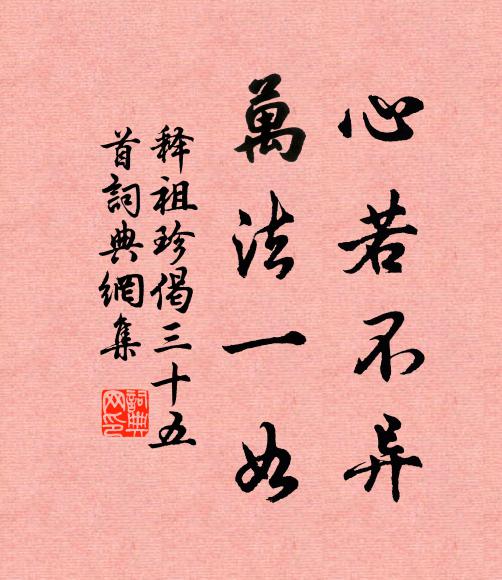 心若不异
萬法一如
释祖珍偈三十五
首詞典網集
詞典
网印